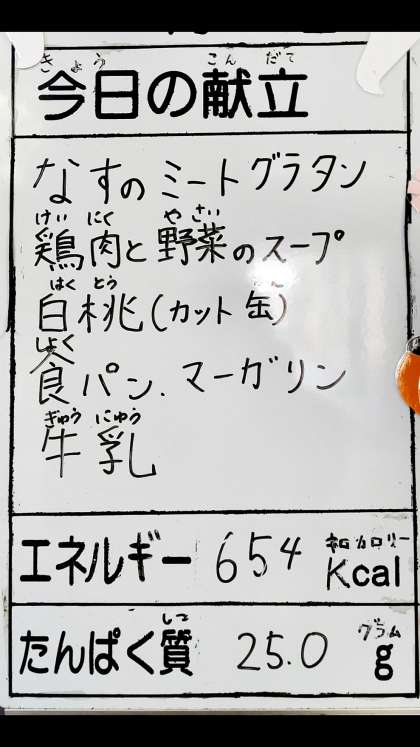 きょう こんだて
今日の献立
なすのミートグラタン
けいにく やさい
鶏肉と野菜のスープ
はくとう
白桃(カット缶)
しょく
食パン.マーガリン
ぎゅうにゅう
牛乳
キロカロリー
エネルギー 654 Kcal
しつ グラム
たんぱく質 25.0 g